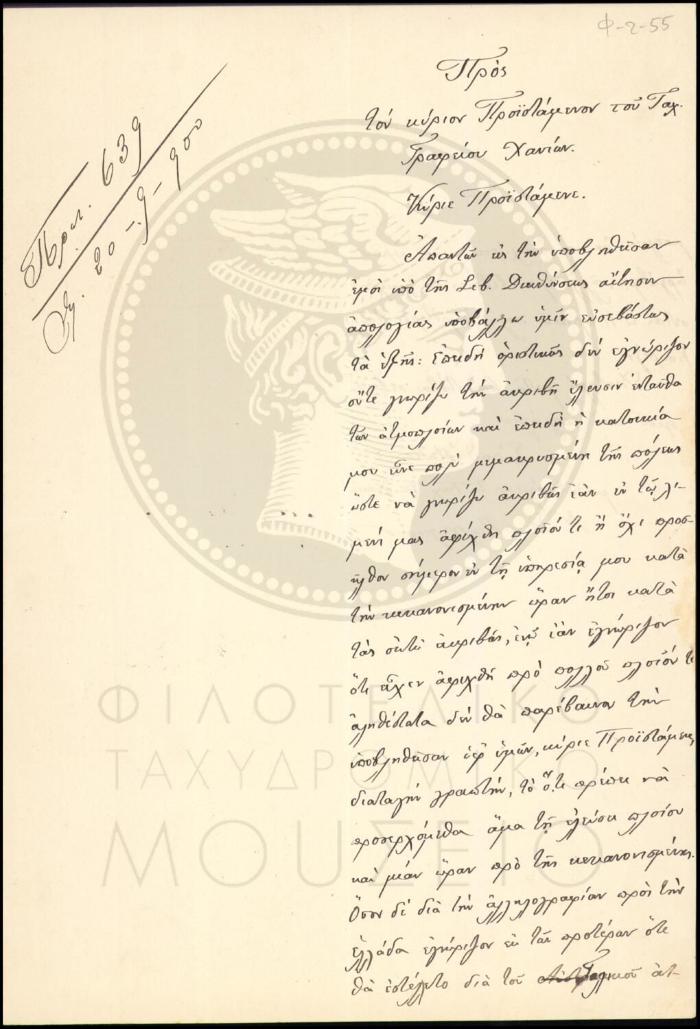 Φ-2-55
Πρωτ. 639
Τῇ 20-9-900
Πρὸς
τὸν κύριον Προϊστάμενον τοῦ Ταχ.
Γραφείου Χανίων.
Κύριε Προϊστάμενε.
Ἀπαντῶν εἰς τὴν ὑποβληθεῖσαν
ἐμοὶ ὑπὸ τῆς Σεβ. Διευθύνσεως αἴτησιν
ἀπολογίας ὑποβάλλω ὑμῖν εὐσεβάστως
τὰ ἑξῆς: Ἐπειδὴ ὁριστικῶς δὲν ἐγνώριζον
οὔτε γνωρίζω τὴν ἀκριβῆ ἔλευσιν ἐνταῦθα
τῶν ἀτμοπλοίων καὶ ἐπειδὴ ἡ κατοικία
μου εἶνε πολὺ μεμακρυσμένη τῆς πόλεως
ὥστε νὰ γνωρίζω ἀκριβῶς ἐὰν ἐν τῷ λι-
μένι μας ἀφίχθη πλοῖόν τι ἢ ὄχι προσ-
ῆλθον σήμερον ἐν τῇ ὑπηρεσίᾳ μου κατὰ
τὴν κεκανονισμένην ὥραν ἤτοι κατὰ
τὰς ὀκτὼ ἀκριβῶς, ἐνῷ ἐὰν ἐγνώριζον
ὅτι εἶχεν ἀφιχθῆ πρὸ πολλοῦ πλοῖόν τι
ἀληθέστατα δὲν θὰ παρέβαινον τὴν
ὑποβληθεῖσαν ἐφ' ὑμῶν, κύριε Προϊστάμενε,
διαταγὴν γραπτήν, τὸ ὅ,τι πρέπει νὰ
προσερχόμεθα ἅμα τῇ ἐλεύσει πλοίου
καὶ μίαν ὥραν πρὸ τῆς κεκανονισμένης.
Ὅσον δὲ διὰ τὴν ἀλληλογραφίαν πρὸς τὴν
Ἑλλάδα ἐγνώριζον ἐκ τῶν προτέρων ὅτι
θὰ ἐστέλλετο διὰ τοῦ ἀτ-
ΦΙΛΟΤΕΛΙΚΟ
ΤΑΧΥΔΡΟΜΙΚΟ
ΜΟΥΣΕΙΟ